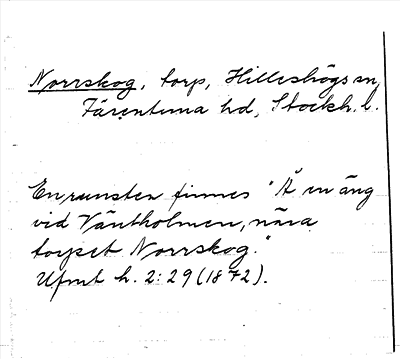 Norrskog, torp, Hilleshögs sn,
Färentuna hd, Stockh. l.
En runsten finnes "Å en äng
vid Väntholmen, nära
torpet Norrskog."
Ufmt h. 2: 29 (1872).